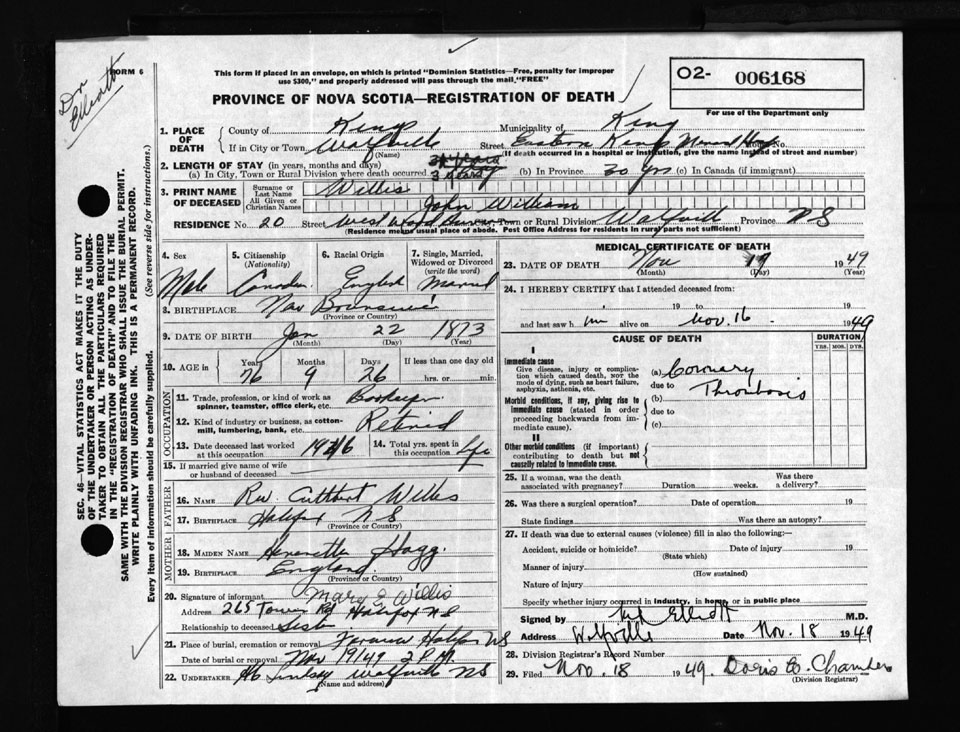 Dr Elliott
FORM 6
This form if placed in an envelope, on which is printed "Dominion Statistics—Free, penalty for improper
use $300," and properly addressed will pass through the mail "FREE"
O2- 006168
For use of the Department only
PROVINCE OF NOVA SCOTIA—REGISTRATION OF DEATH
1. PLACE OF DEATH County of Kings Municipality of King
If in City or Town Wolfville (Name) Street Eastern Kings
(If death occurred in a hospital or institution, give the name instead of street and number)
2. LENGTH OF STAY (in years, months and days)
(a) In City, Town or Rural Division where death occurred (b) In Province 30 yrs (c) In Canada (if immigrant)
3. PRINT NAME OF DECEASED Surname or Last Name Willis
All Given or Christian Names John William
RESIDENCE No. 20 Street Westwood Town or Rural Division Wolfville Province NS
(Residence means usual place of abode. Post Office Address for residents in rural parts not sufficient)
4. Sex Male
5. Citizenship (Nationality) Canadian
6. Racial Origin English
7. Single, Married, Widowed or Divorced (write the word) Married
8. BIRTHPLACE New Brunswick
(Province or Country)
9. DATE OF BIRTH Jan 22 1873
(Month) (Day) (Year)
10. AGE in Years 76 Months 9 Days 26 If less than one day old hrs. or min.
OCCUPATION
11. Trade, profession, or kind of work as spinner, teamster, office clerk, etc. Bookkeeper
12. Kind of industry or business, as cotton-mill, lumbering, bank, etc. Retired
13. Date deceased last worked at this occupation 1946
14. Total yrs. spent in this occupation Life
15. If married give name of wife or husband of deceased
FATHER
16. NAME Rev. Cuthbert Willis
17. BIRTHPLACE Halifax NS
(Province or Country)
MOTHER
18. MAIDEN NAME Henrietta Hogg.
19. BIRTHPLACE England
(Province or Country)
20. Signature of informant Mary Willis
Address 265 Tower Rd Halifax NS
Relationship to deceased Sister
21. Place of burial, cremation or removal Halifax NS
Date of burial or removal Nov 19/49 2 P.M.
22. UNDERTAKER Lindsay Wolfville NS
(Name and address)
MEDICAL CERTIFICATE OF DEATH
23. DATE OF DEATH Nov 1949
(Month) (Day) (Year)
24. I HEREBY CERTIFY that I attended deceased from:
19 to 19
and last saw him alive on Nov. 16 1949
CAUSE OF DEATH
DURATION
YRS. MOS. DYS.
I
Immediate cause
Give disease, injury or complication which caused death, NOT the mode of dying, such as heart failure, asphyxia, asthenia, etc.
(a) Coronary
due to Thrombosis
Morbid conditions, if any, giving rise to immediate cause (stated in order proceeding backwards from immediate cause).
(b)
due to
(c)
II
Other morbid conditions (if important) contributing to death but not causally related to immediate cause.
25. If a woman, was the death associated with pregnancy? Duration weeks. Was there a delivery?
26. Was there a surgical operation? Date of operation 19
State findings Was there an autopsy?
27. If death was due to external causes (violence) fill in also the following:—
Accident, suicide or homicide? Date of injury 19
(State which)
Manner of injury
(How sustained)
Nature of injury
Specify whether injury occurred in industry, in home, or in public place
Signed by Elliott M.D.
Address Wolfville Date Nov. 18 1949
28. Division Registrar's Record Number
29. Filed Nov. 18 1949. Doris E. Chambers
(Division Registrar)
SEC. 46—VITAL STATISTICS ACT MAKES IT THE DUTY
OF THE UNDERTAKER OR PERSON ACTING AS UNDER-
TAKER TO OBTAIN ALL THE PARTICULARS REQUIRED
IN THE "REGISTRATION OF DEATH" AND TO FILE THE
SAME WITH THE DIVISION REGISTRAR WHO SHALL ISSUE THE BURIAL PERMIT.
WRITE PLAINLY WITH UNFADING INK. THIS IS A PERMANENT RECORD.
Every item of information should be carefully supplied. (See reverse side for instructions.)